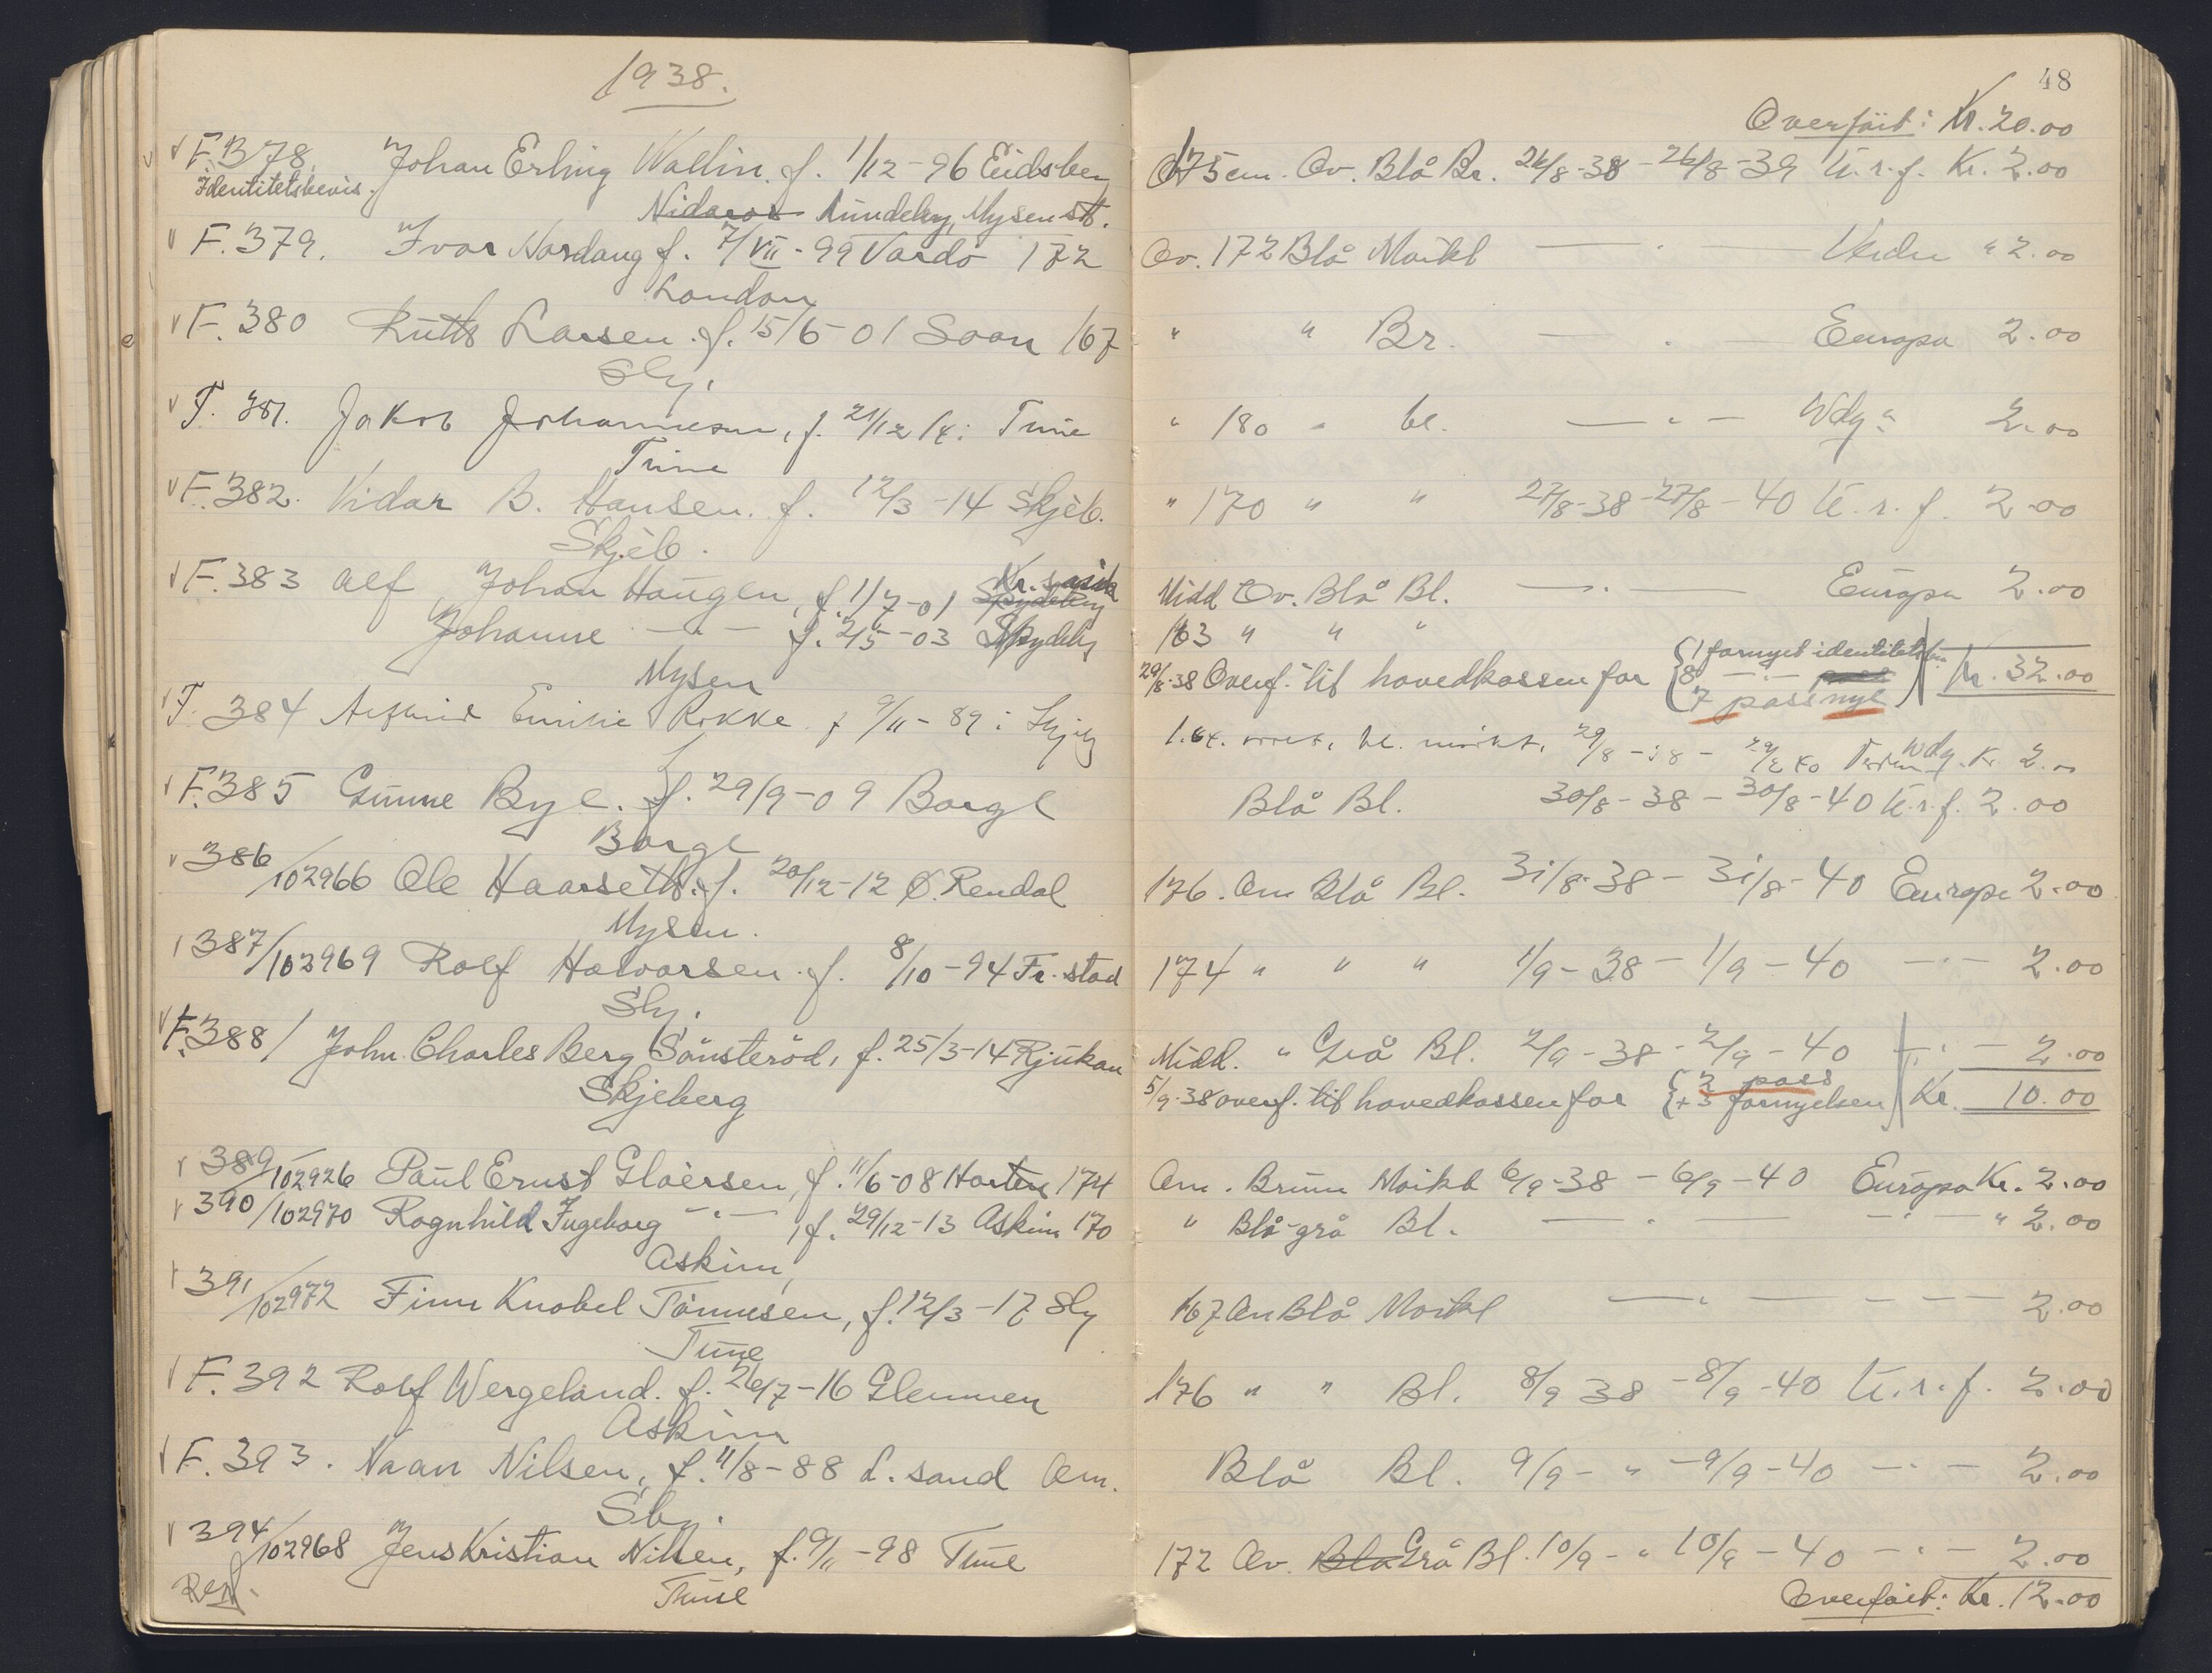 1938.
F. 378. Johan Erling Wallin. f. 1/12-96 Eidsberg
Identitetsbevis.
Nidaros Rundeby, Mysen st.
F. 379. Ivar Nordang f. 7/VII-99 Vardö 172
London
F. 380 Ruth Larsen. f. 15/6-01 Soon 167
Sby.
F. 381. Jakob Johannesen, f. 21/12 14 i Tune
Tune
F. 382. Vidar B. Hansen. f. 12/3-14 Skjeb.
Skjeb.
F. 383 Alf Johan Haugen, f. 1/7-01 Spydeberg
Johanne —"— f. 2/5-03 Spydebg
Mysen
F. 384 Emilie Rokke f 9/11-89 i
F. 385 Gunne Bye. f. 29/9-09 Borge
Borge
386/102966 Ole Haarseth. f. 20/12-12 Ø. Rendal
Mysen.
387/102969 Rolf Halvorsen. f. 8/10-94 Fr.stad
Sby.
F. 388/ John Charles Berg Sönsteröd, f. 25/3-14 Rjukan
Skjeberg
389/102926 Paul Ernst Gloersen, f. 11/6-08 Horten 174
390/102970 Ragnhild Ingeborg —"—, f. 29/12-13 Askim 170
Askim,
391/102972 Finn Knobel Tönnesen, f. 12/3-17 Sby
Tune
F. 392 Rolf Wergeland. f. 26/7-16 Glemmen
Askim
F. 393. Naan Nilsen, f. 11/8-88 L.sand Om.
Sby.
394/102968 Jens Kristian Nilsen, f. 9/11-98 Tune
Tune
48
Overført: Kr. 20.00
175 cm. Ov. Blå Br. 26/8-38 - 26/8-39 U.r.f. Kr. 2.00
Ov. 172 Blå Mörkbl —"— Verden " 2.00
" " Br. —"— Europa 2.00
" 180 " bl. —"— 2.00
" 170 " " 27/8-38 - 27/8-40 U.r.f. 2.00
Midd Ov. Blå Bl. —"— Europa 2.00
163 " " "
29/8-38 Overf. til hovedkassen for { 1 fornyet identitetsbevis 8 —"— 7 pass nye Kr. 32.00
29/8-38 - 29/8 40 Kr 2.00
Blå Bl. 30/8-38 - 30/8-40 U.r.f. 2.00
176. Om Blå Bl. 31/8-38 - 31/8-40 Europa 2.00
174 " " " 1/9-38 - 1/9-40 —"— 2.00
Midd. " Grå Bl. 2/9-38 - 2/9-40 —"— 2.00
5/9-38 overf. til hovedkassen for { 2 pass + 3 fornyelser Kr. 10.00
Om. Brun Mörkbl 6/9-38 - 6/9-40 Europa Kr. 2.00
" Blå-grå Bl. —"— —"— " 2.00
167 Om Blå Mörkbl —"— — — — 2.00
176 " " Bl. 8/9 38 - 8/9-40 U.r.f. 2.00
Blå Bl. 9/9- " - 9/9-40 —"— 2.00
172 Ov. Blå Grå Bl. 10/9- " 10/9-40 —"— 2.00
Overført: Kr. 12.00